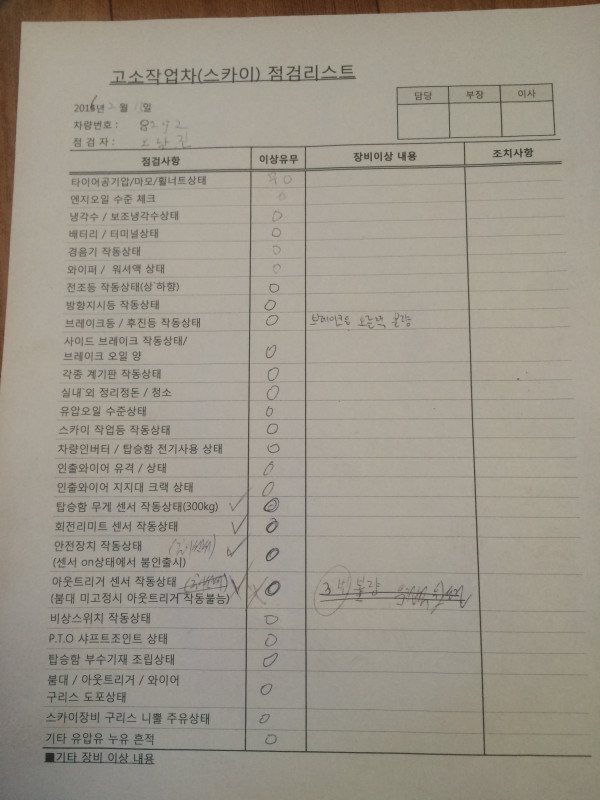 고소작업차(스카이) 점검리스트
담당 부장 이사
2016년 2월 일
차량번호 : 8292
점 검 자 :
점검사항 이상유무 장비이상 내용 조치사항
타이어공기압/마모/휠너트상태 O
엔지오일 수준 체크 O
냉각수 / 보조냉각수상태 O
배터리 / 터미널상태 O
경음기 작동상태 O
와이퍼 / 워셔액 상태 O
전조등 작동상태(상`하향) O
방향지시등 작동상태 O
브레이크등 / 후진등 작동상태 O 브레이크등 불량
사이드 브레이크 작동상태/
브레이크 오일 양 O
각종 계기판 작동상태 O
실내`외 정리정돈 / 청소 O
유압오일 수준상태 O
스카이 작업등 작동상태 O
차량인버터 / 탑승함 전기사용 상태 O
인출와이어 유격 / 상태 O
인출와이어 지지대 크랙 상태 O
탑승함 무게 센서 작동상태(300kg) ✓ O
회전리미트 센서 작동상태 ✓ O
안전장치 작동상태 ✓ O
(센서 on상태에서 붐인출시)
아웃트리거 센서 작동상태 ✓ X O 불량
(붐대 미고정시 아웃트리거 작동불능)
비상스위치 작동상태 O
P.T.O 샤프트조인트 상태 O
탑승함 부수기재 조립상태 O
붐대 / 아웃트리거 / 와이어
구리스 도포상태 O
스카이장비 구리스 니뿔 주유상태 O
기타 유압유 누유 흔적 O
■기타 장비 이상 내용